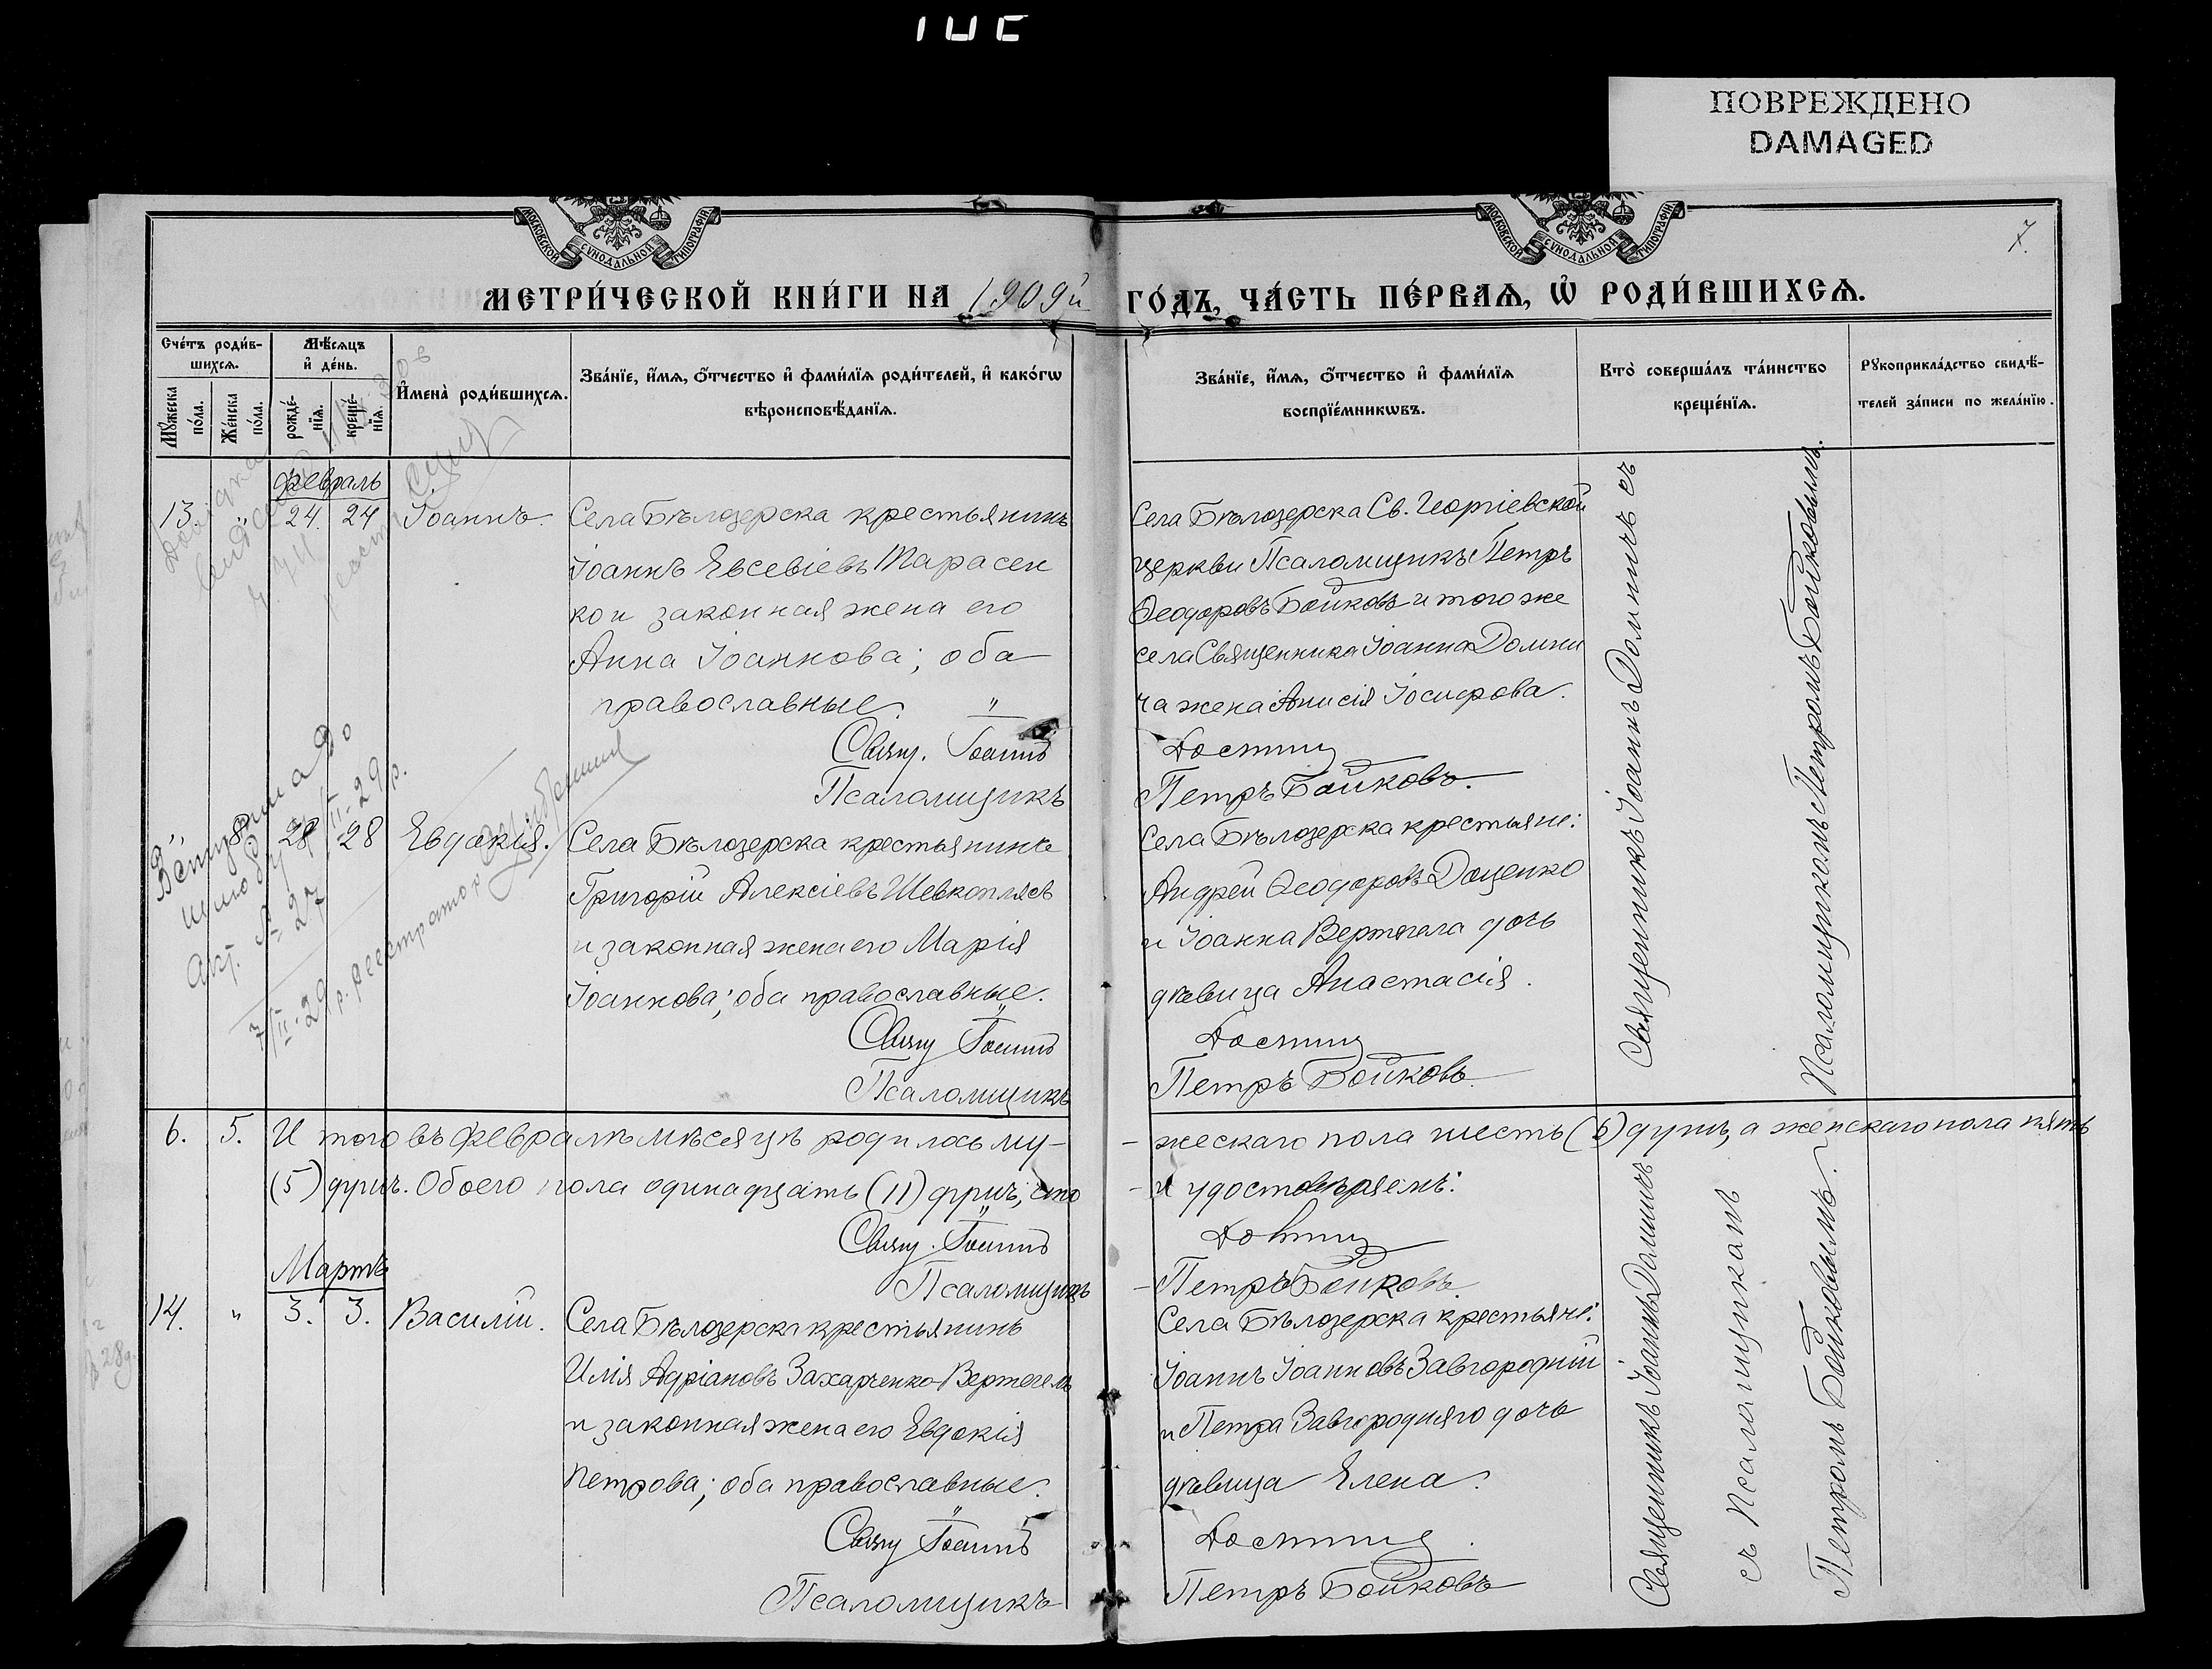 ПОВРЕЖДЕНО
DAMAGED
МОСКОВСКОЙ СУНОДАЛЬНОЙ ТИПОГРАФІИ
МОСКОВСКОЙ СУНОДАЛЬНОЙ ТИПОГРАФІИ
7.
МЕТРИ́ЧЕСКОЙ КНИ́ГИ НА 1909й ГО́ДЪ, ЧА́СТЬ ПЕ́РВАЯ, Ѡ҆ РОДИ́ВШИХСЯ.
Сче́тъ роди́в-
шихся.
Мꙋ́жеска по́ла.
Же́нска по́ла.
Мѣ́сяцъ
и҆ де́нь.
рожде́-нїя.
креще́-нїя.
И҆мена̀ роди́вшихся.
Зва́нїе, и҆́мя, ѻ҆́тчество и҆ фами́лїя роди́телей, и҆ како́гѡ
вѣроисповѣ́данїя.
Зва́нїе, и҆́мя, ѻ҆́тчество и҆ фами́лїя
воспрїе́мникѡвъ.
Кто̀ соверша́лъ та́инство
креще́нїя.
Рꙋкоприкла́дство свидѣ́-
телей за́писи по жела́нїю.
Февраль
13. " 24. 24 Іоаннъ.
Села Бѣлозерска крестьянинъ
Іоаннъ Евсевіевъ Тарасен
ко и законная жена его
Анна Іоаннова; оба
православные. "
Свящ. Іоаннъ
Псаломщикъ
Села Бѣлозерска Св. Георгіевской
церкви Псаломщикъ Петръ
Ѳеодоровъ Бойковъ и того же
села Священника Іоанна Домни
ча жена Анисія Іосифова.
Домнич
Петръ Бойковъ.
Священникъ Іоаннъ Домничъ съ
Псаломщикомъ Петромъ Бойковымъ.
" 8 28 28 Евдокія.
Села Бѣлозерска крестьянинъ
Григорій Алексіевъ Шевкоплясъ
и законная жена его Марія
Іоаннова; оба православные.
Свящ Іоаннъ
Псаломщикъ
Села Бѣлозерска крестьяне:
Андрей Ѳеодоровъ Доценко
и Іоанна Вертегела дочь
дѣвица Анастасія.
Домнич
Петръ Бойковъ.
реєстратор
6. 5. Итого въ февралѣ мѣсяцѣ родилось му-
- жескаго пола шесть (6) душъ, а женскаго пола пять
(5) душъ. Обоего пола одинадцать (11) душъ, что
- и удостовѣряемъ:
Свящ. Іоаннъ
Домнич
Псаломщикъ
- Петръ Бойковъ.
Мартъ
14. " 3. 3. Василій.
Села Бѣлозерска крестьянинъ
Илія Адріановъ Захарченко-Вертегелъ
и законная жена его Евдокія
Петрова; оба православные.
Свящ Іоаннъ
Псаломщикъ
Села Бѣлозерска крестьяне:
Іоаннъ Іоанновъ Завгородній
и Петра Завгородняго дочь
дѣвица Елена.
Домнич
Петръ Бойковъ
Священникъ Іоаннъ Домничъ
съ Псаломщикомъ
Петромъ Бойковымъ.